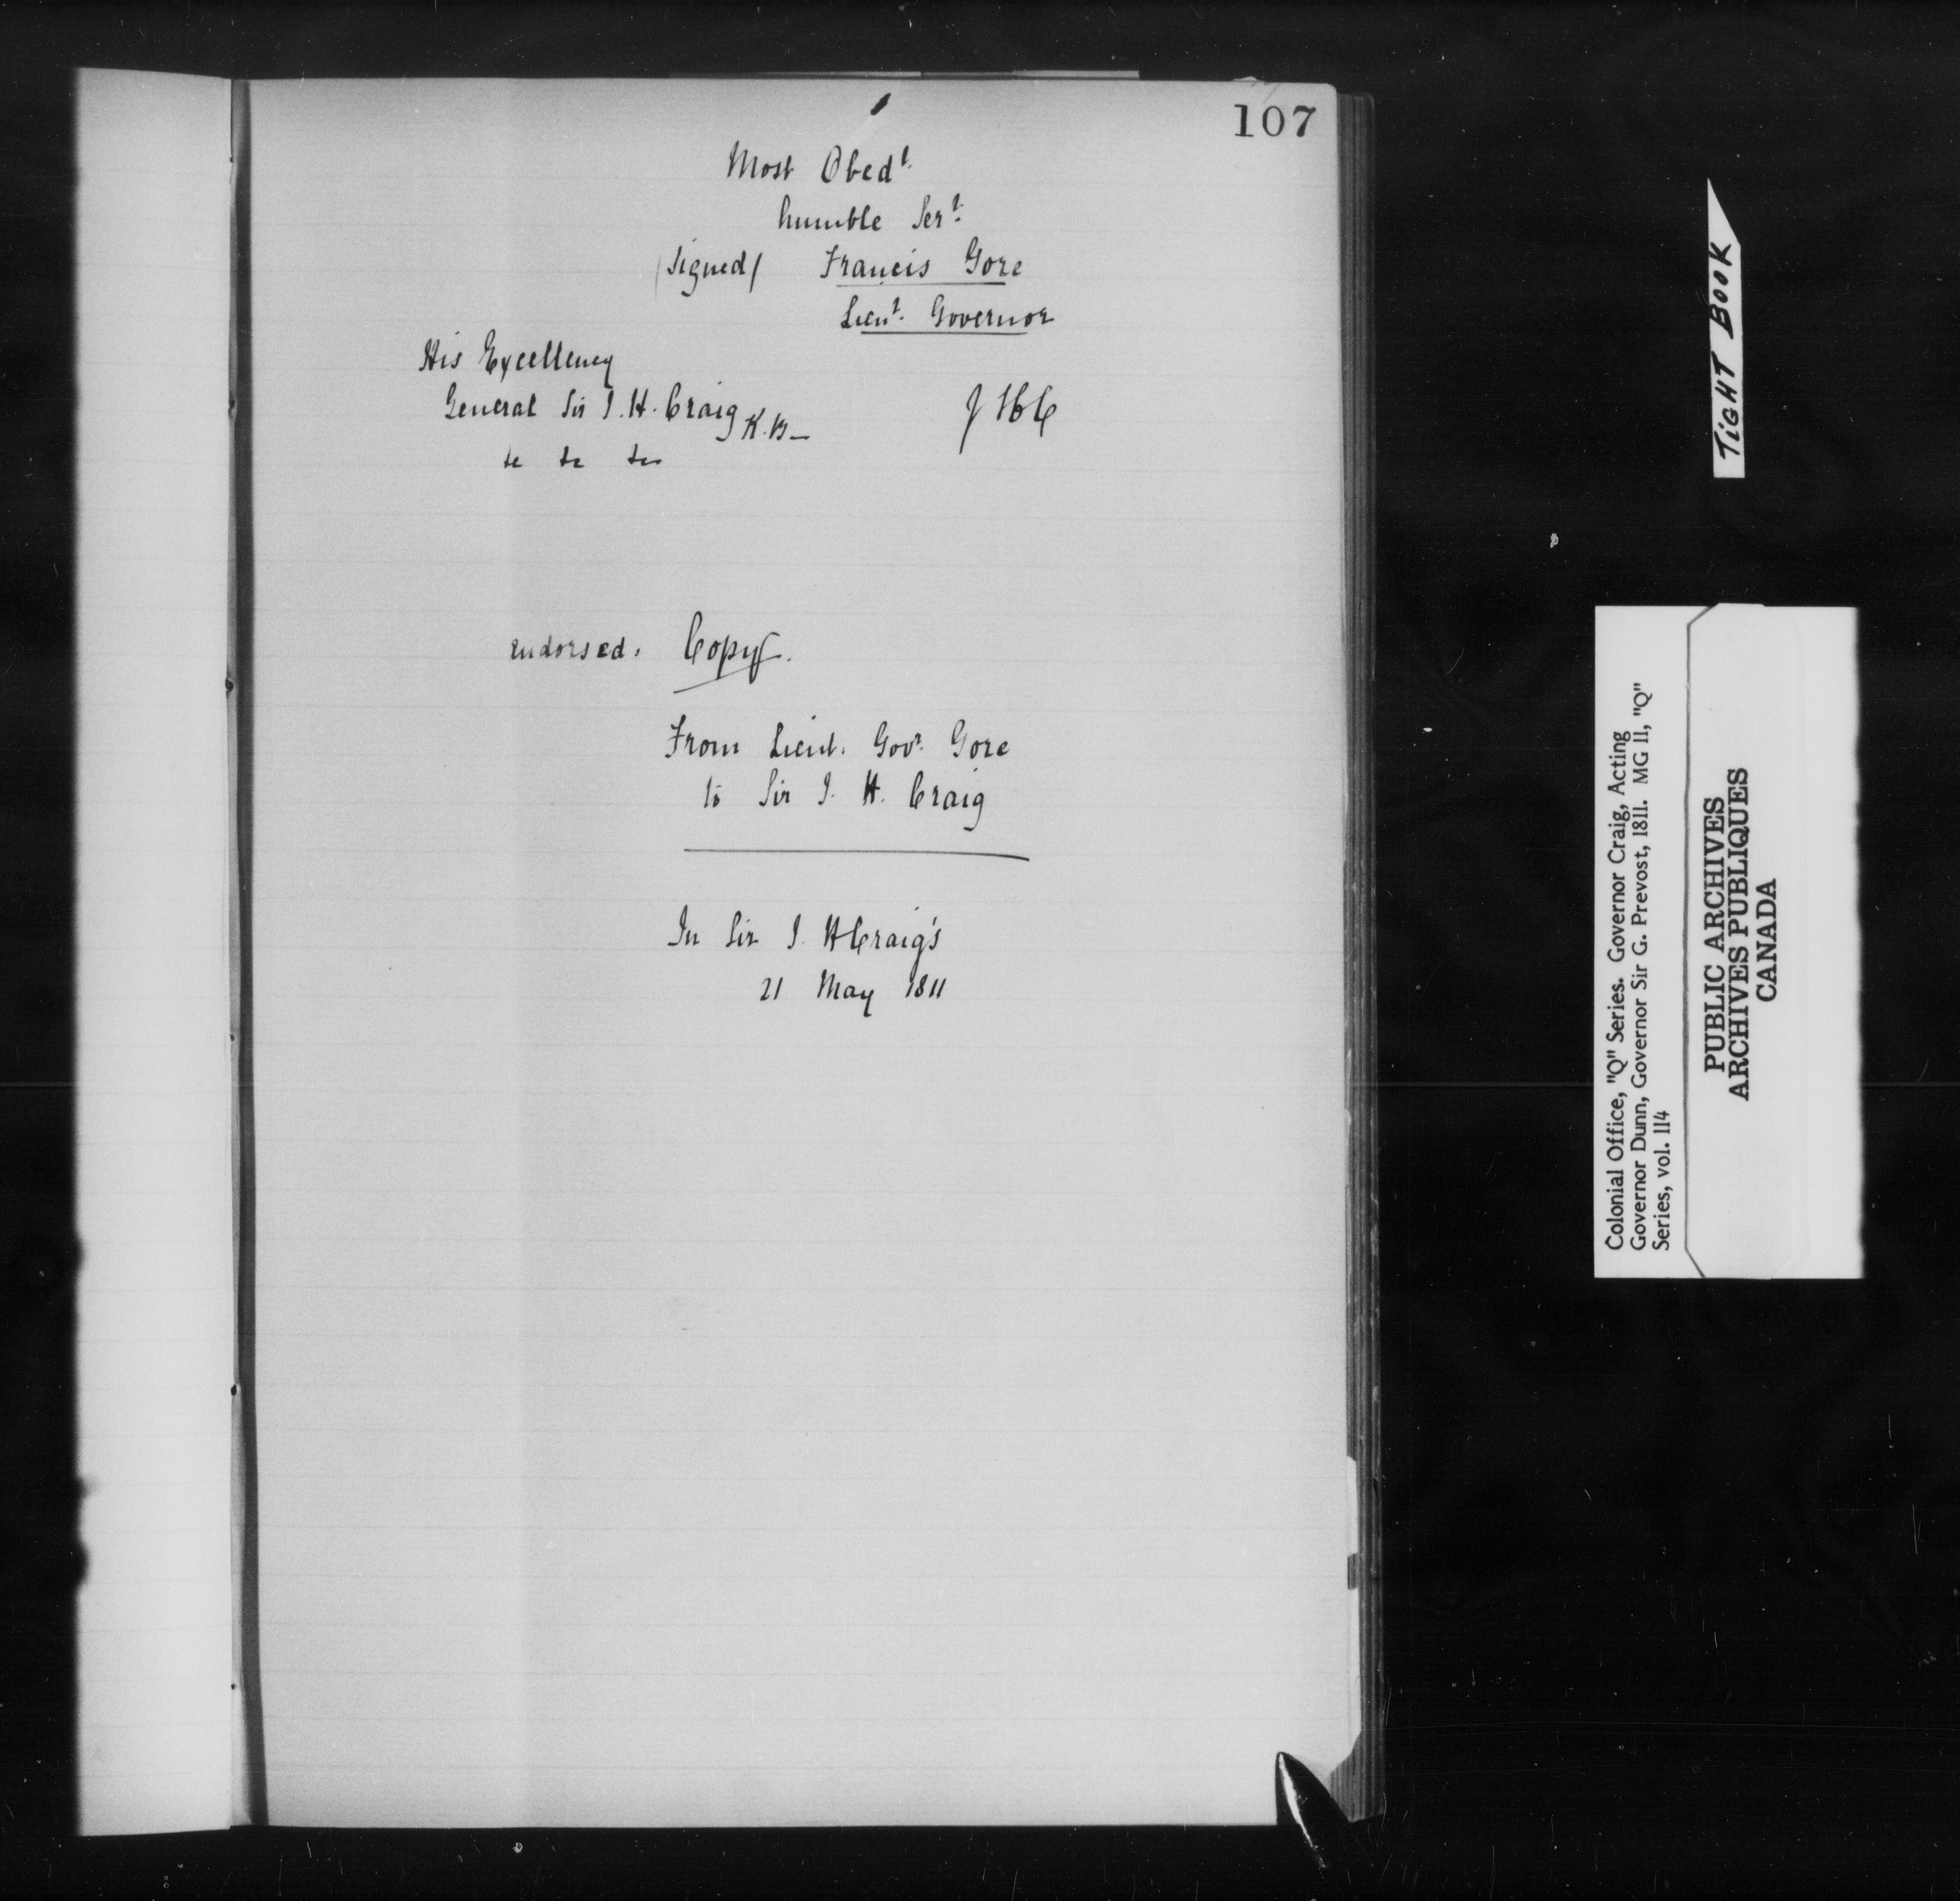 107
Most Obed.t
humble Ser.t
(signed) Francis Gore
Lieu.t Governor
His Excellency
General Sir J. H. Craig K.B.
&c &c &c
J H C
endorsed. Copy.
From Lieut. Gov.r Gore
to Sir J. H. Craig
In Sir J. H Craig's
21 May 1811
TIGHT BOOK
Colonial Office, "Q" Series. Governor Craig, Acting
Governor Dunn, Governor Sir G. Prevost, 1811. MG 11, "Q"
Series, vol. 114
PUBLIC ARCHIVES
ARCHIVES PUBLIQUES
CANADA